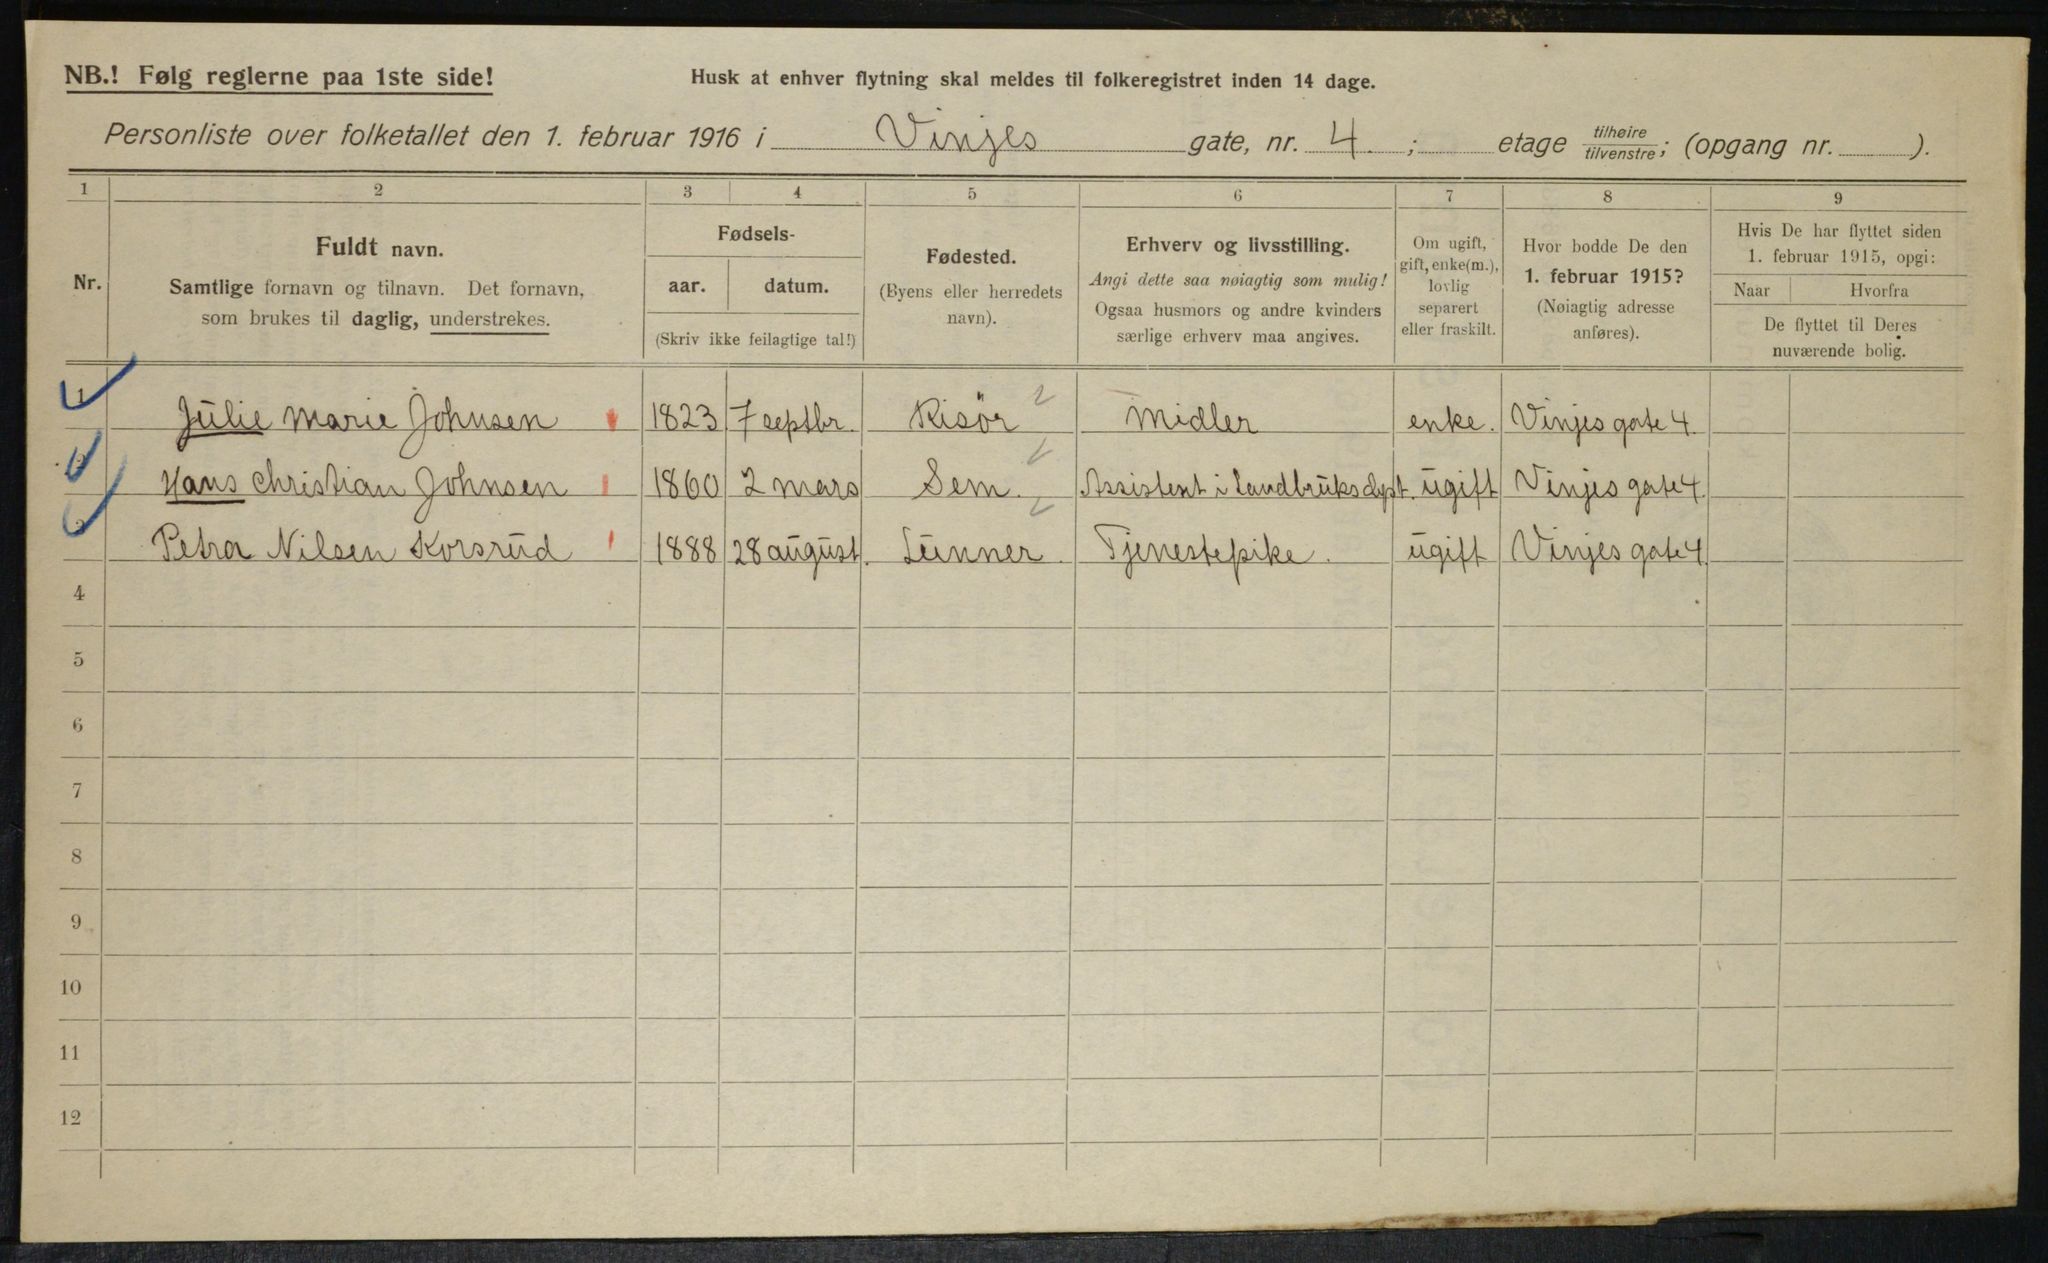 NB.! Følg reglerne paa 1ste side!
Husk at enhver flytning skal meldes til folkeregistret inden 14 dage.
Personliste over folketallet den 1. februar 1916 i Vinjes gate, nr. 4. ; etage tilhøire/tilvenstre; (opgang nr. ).
1 2 3 4 5 6 7 8 9
Nr.
Fuldt navn.
Samtlige fornavn og tilnavn. Det fornavn,
som brukes til daglig, understrekes.
Fødsels-
aar. datum.
(Skriv ikke feilagtige tal!)
Fødested.
(Byens eller herredets
navn).
Erhverv og livsstilling.
Angi dette saa nøiagtig som mulig!
Ogsaa husmors og andre kvinders
særlige erhverv maa angives.
Om ugift,
gift, enke(m.),
lovlig
separert
eller fraskilt.
Hvor bodde De den
1. februar 1915?
(Nøiagtig adresse
anføres).
Hvis De har flyttet siden
1. februar 1915, opgi:
Naar Hvorfra
De flyttet til Deres
nuværende bolig.
1 Julie Marie Johnsen 1823 7 septbr. Risör Midler enke. Vinjes gate 4.
2 Hans Christian Johnsen 1860 2 mars Sem. Assistent i Landbruksdpt. ugift Vinjes gate 4.
3 Petra Nilsen Korsrud 1888 28 august. Lunner. Tjenestepike. ugift Vinjes gate 4.
4
5
6
7
8
9
10
11
12